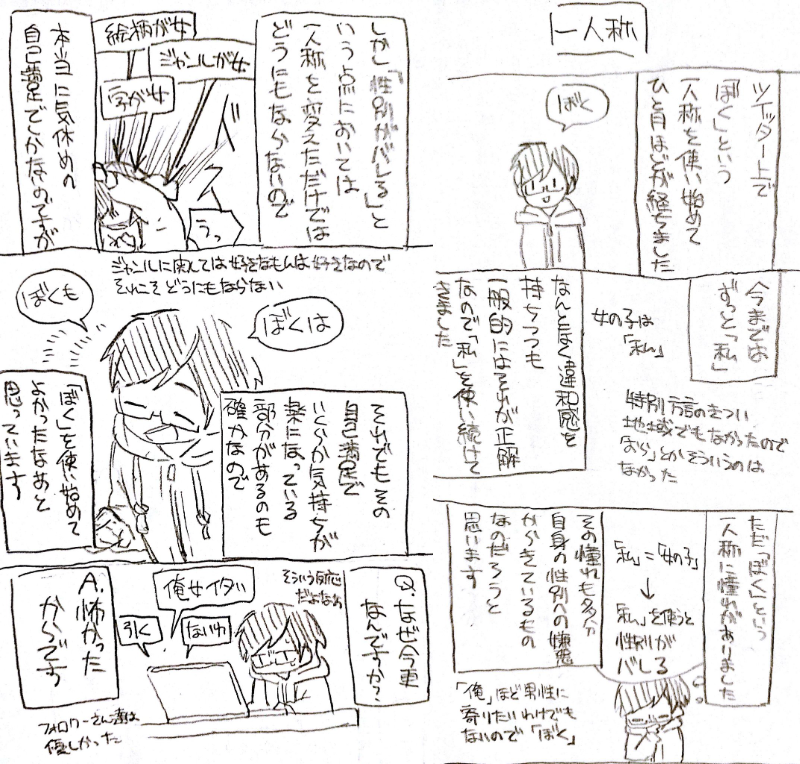 一人称
ツイッター上で
「ぼく」という
一人称を使い始めて
ひと月ほどが経ちました
ぼく
今までは
ずっと「私」
女の子は
「私」
なんとなく違和感を
持ちつつも
一般的にはそれが正解
なので「私」を使い続けて
きました
特別方言のきつい
地域でもなかったので
「おら」とかそういうのは
なかった
ただ「ぼく」という
一人称に憧れがありました
「私」=「女の子」
↓
「私」を使うと
性別が
バレる
その憧れも多分
自身の性別への嫌悪
からきているもの
なのだろうと
思います
「俺」ほど男性に
寄りたいわけでも
ないので「ぼく」
しかし「性別がバレる」と
いう点においては
一人称を変えただけでは
どうにもならないので
絵柄が女
ジャンルが女
字が女
うっ
本当に気休めの
自己満足でしかないのですが
ジャンルに関しては好きなもんは好きなので
それこそどうにもならない
ぼくは
ぼくも
それでもその
自己満足で
いくらか気持ちが
楽になっている
部分があるのも
確かなので
「ぼく」を使い始めて
よかったなあと
思っています
Q.なぜ今更
なんですか?
そういう反応
だよなあ
俺女イタい
引く
ないわ
A.怖かった
からです
フォロワーさん達は
優しかった